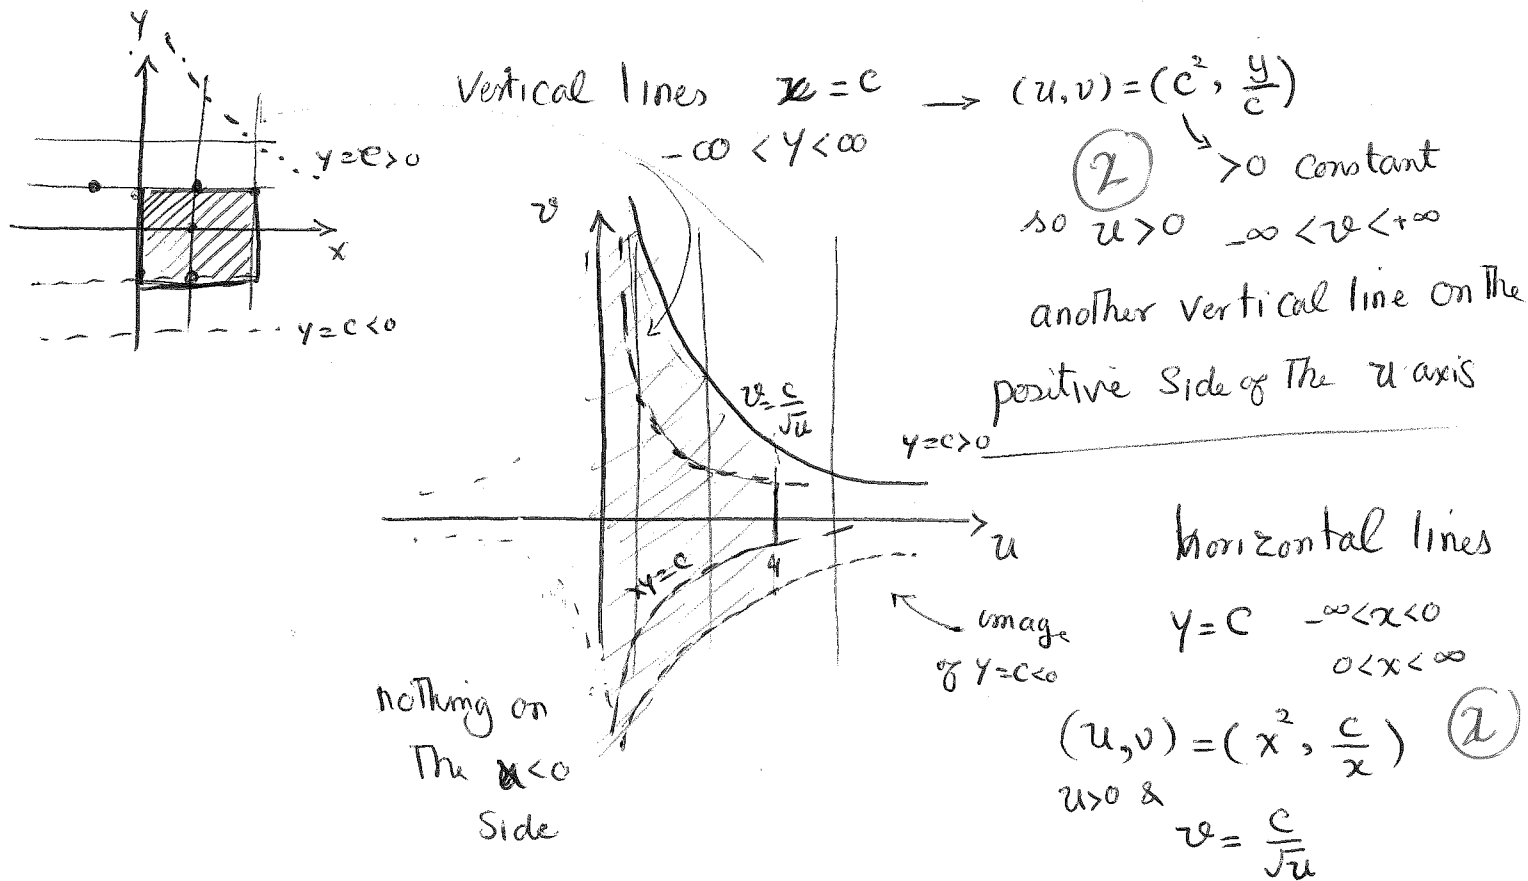 y
y=c>0
x
y=c<0
Vertical lines x=c → (u,v)=(c², y/c)
-∞<y<∞
2
>0 constant
so u>0 -∞<v<+∞
another vertical line on the
positive side of the u axis
v
v=c/√u
y=c>0
u
xy=c
4
image
of y=c<0
nothing on
The u<0
Side
horizontal lines
y=c -∞<x<0
0<x<∞
(u,v)=(x², c/x) 2
u>0 &
v= c/√u